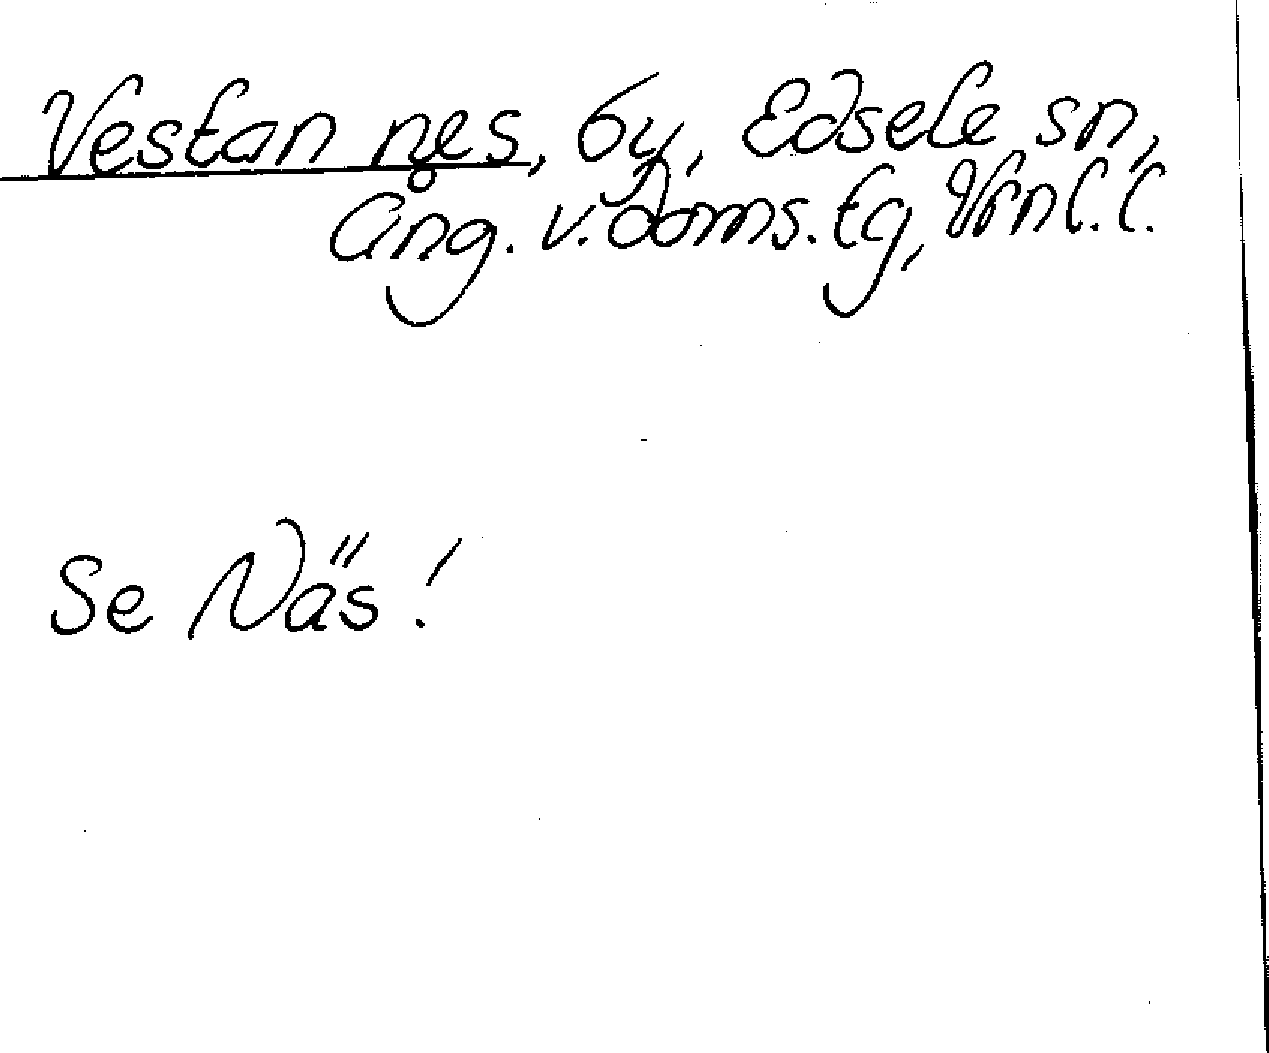 Vestan næs, by, Edsele sn,
Ång. v. doms. tg, Vrnl. l.
Se Näs!